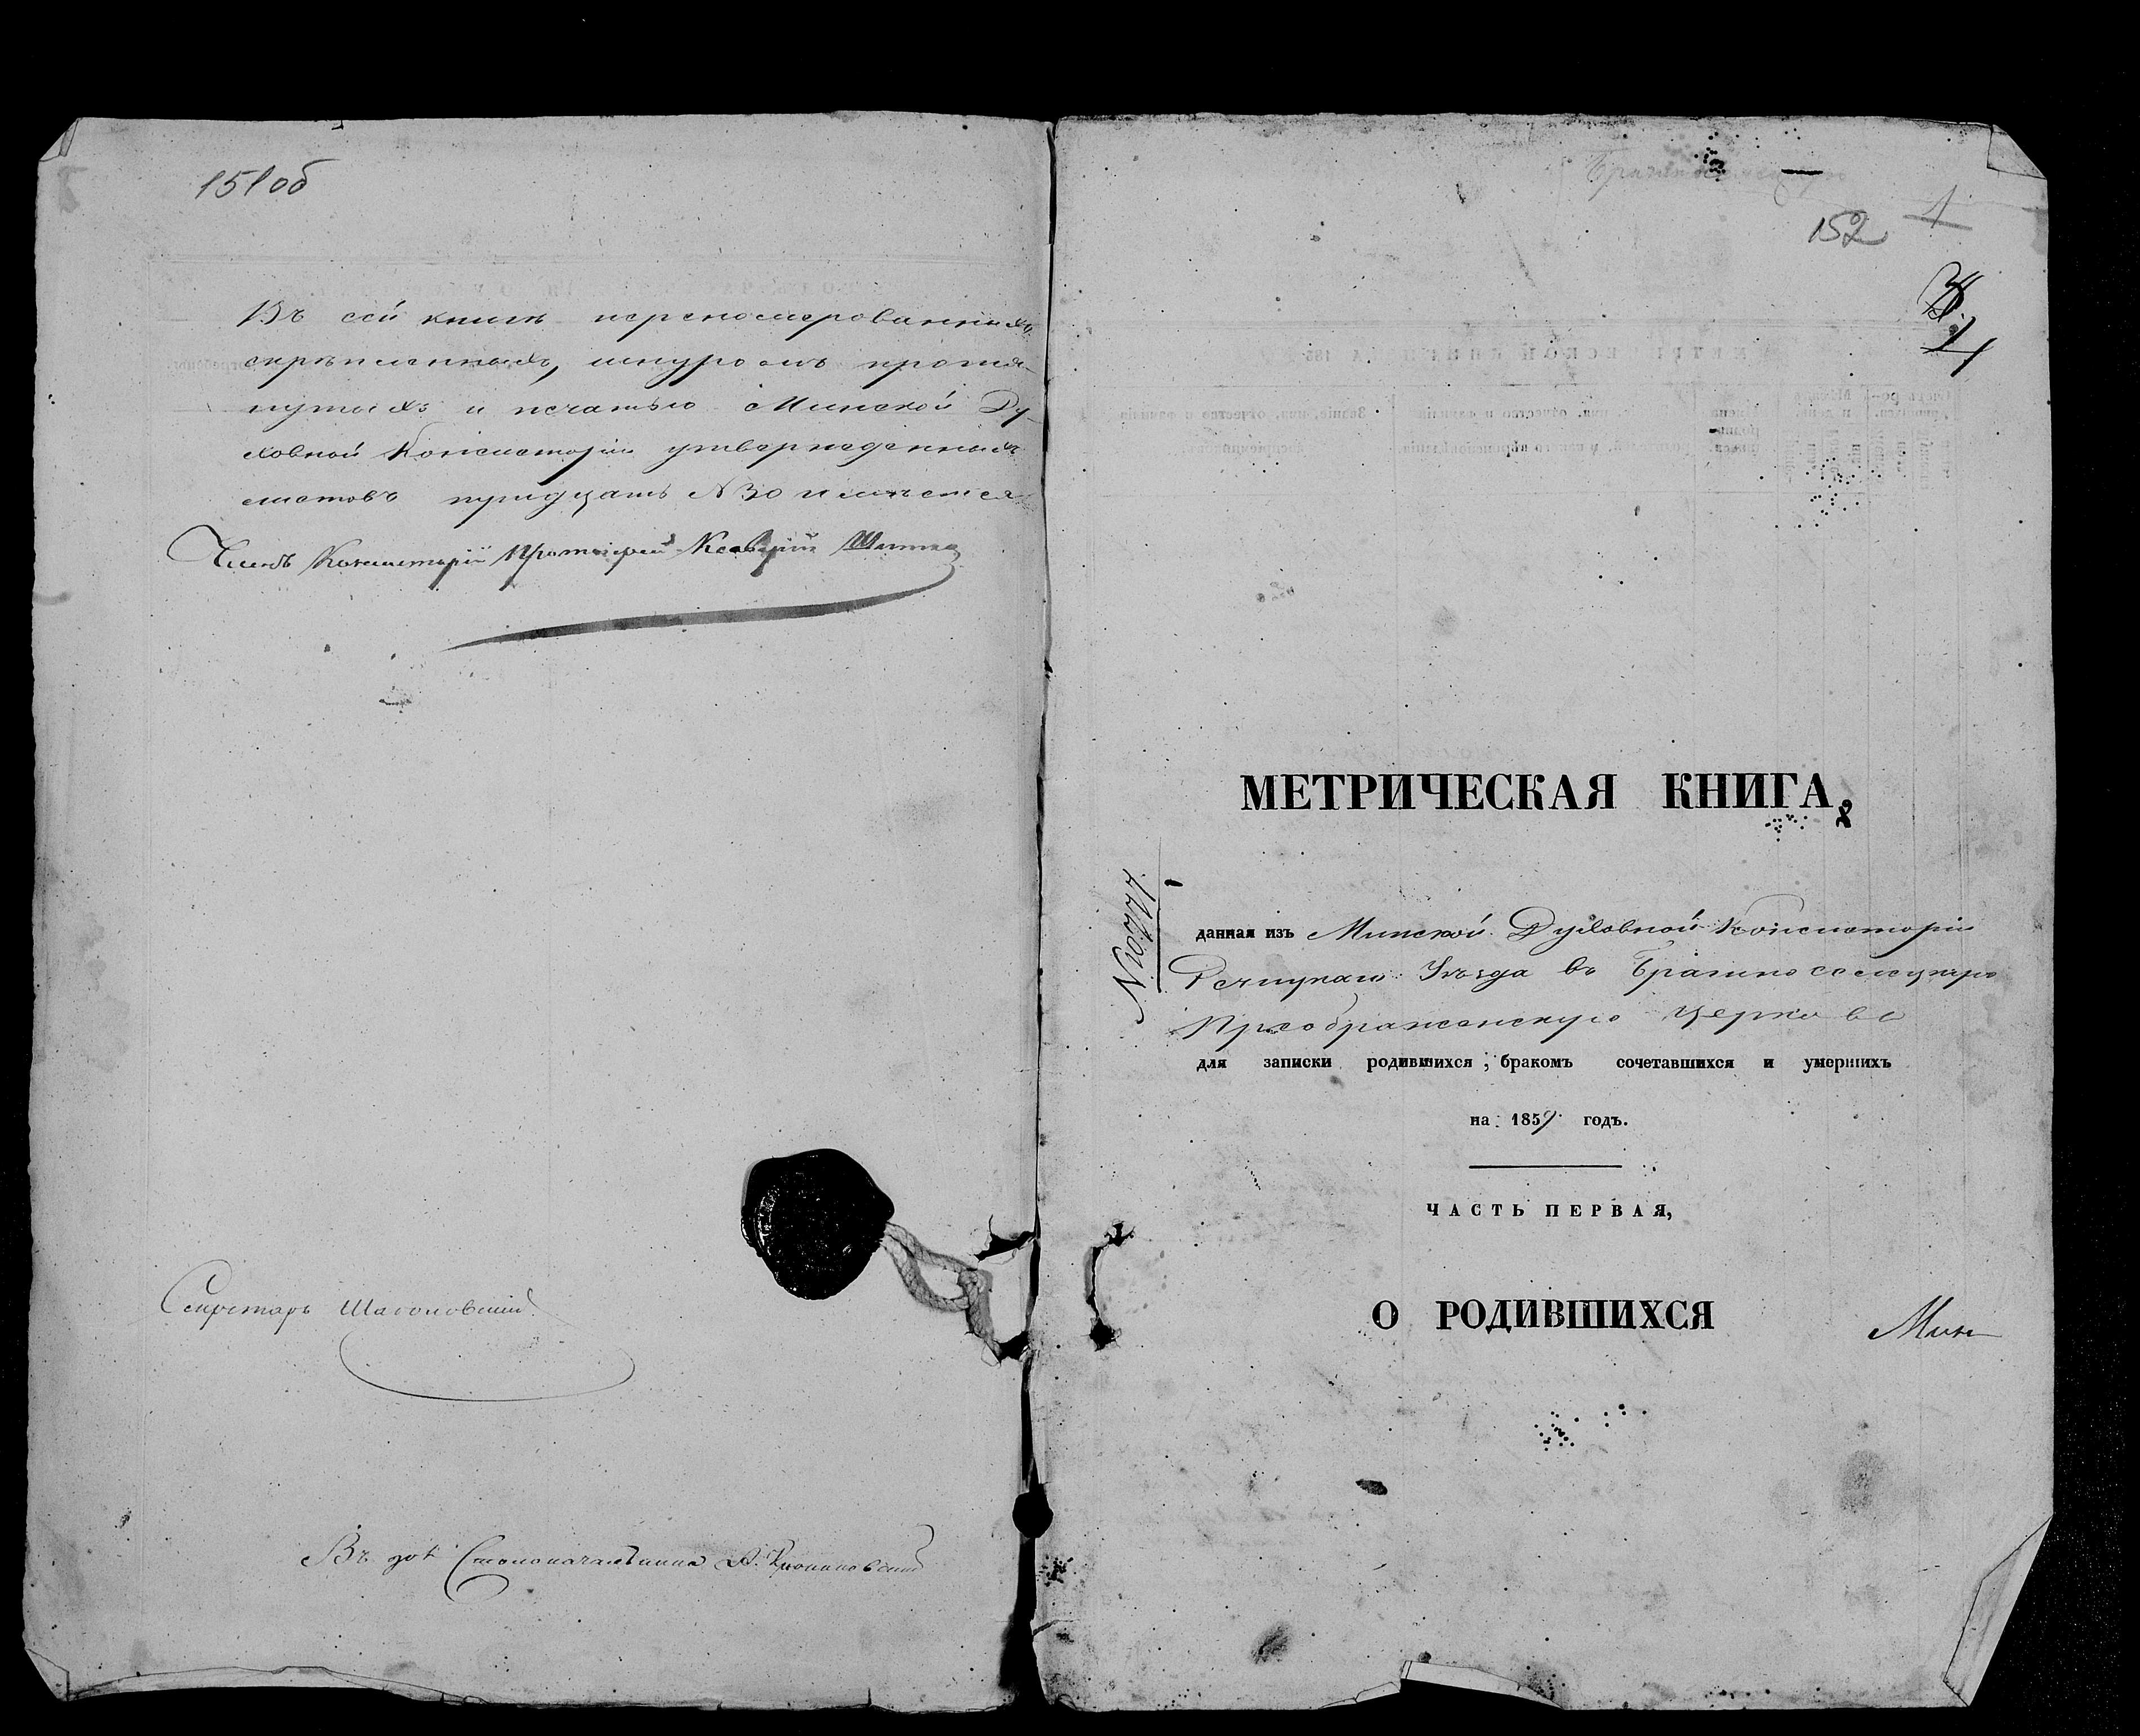 151об
Въ сей книгѣ переномерованныхъ
скрѣпленныхъ, шнуромъ протя-
нутыхъ и печатью Минской Ду-
ховной Консисторіи утвержденныхъ
листовъ тридцать №30 имѣется
Членъ Консисторіи Протоіерей Ксаверій
Секретарь
Въ дол Столоначальника А.
152 1
МЕТРИЧЕСКАЯ КНИГА,
№ 10777
данная изъ Минской Духовной Консисторіи
Речицкаго Уѣзда въ
Преображенскую Церковь
для записки родившихся, бракомъ сочетавшихся и умершихъ
на 1859 годъ.
ЧАСТЬ ПЕРВАЯ,
О РОДИВШИХСЯ
Мин